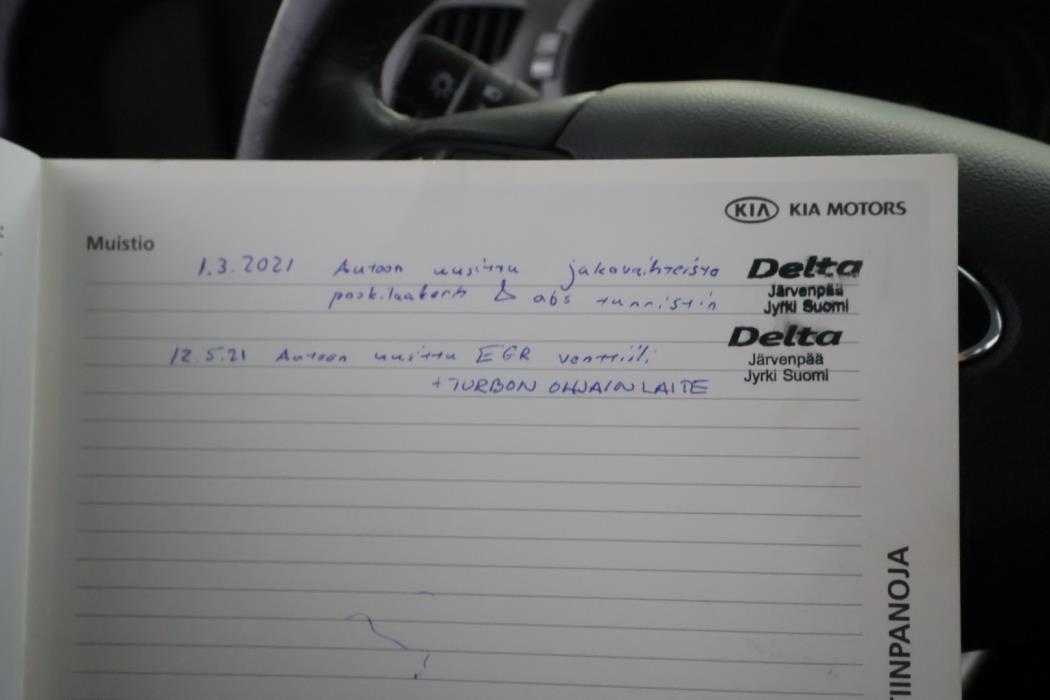 KIA KIA MOTORS
Muistio
1.3.2021 Autoon uusittu jakovaihteisto
& abs tunnistin
Delta
Järvenpää
Jyrki Suomi
12.5.21 Autoon uusittu EGR venttiili
+ TURBON OHJAINLAITE
Delta
Järvenpää
Jyrki Suomi
TIINPANOJA